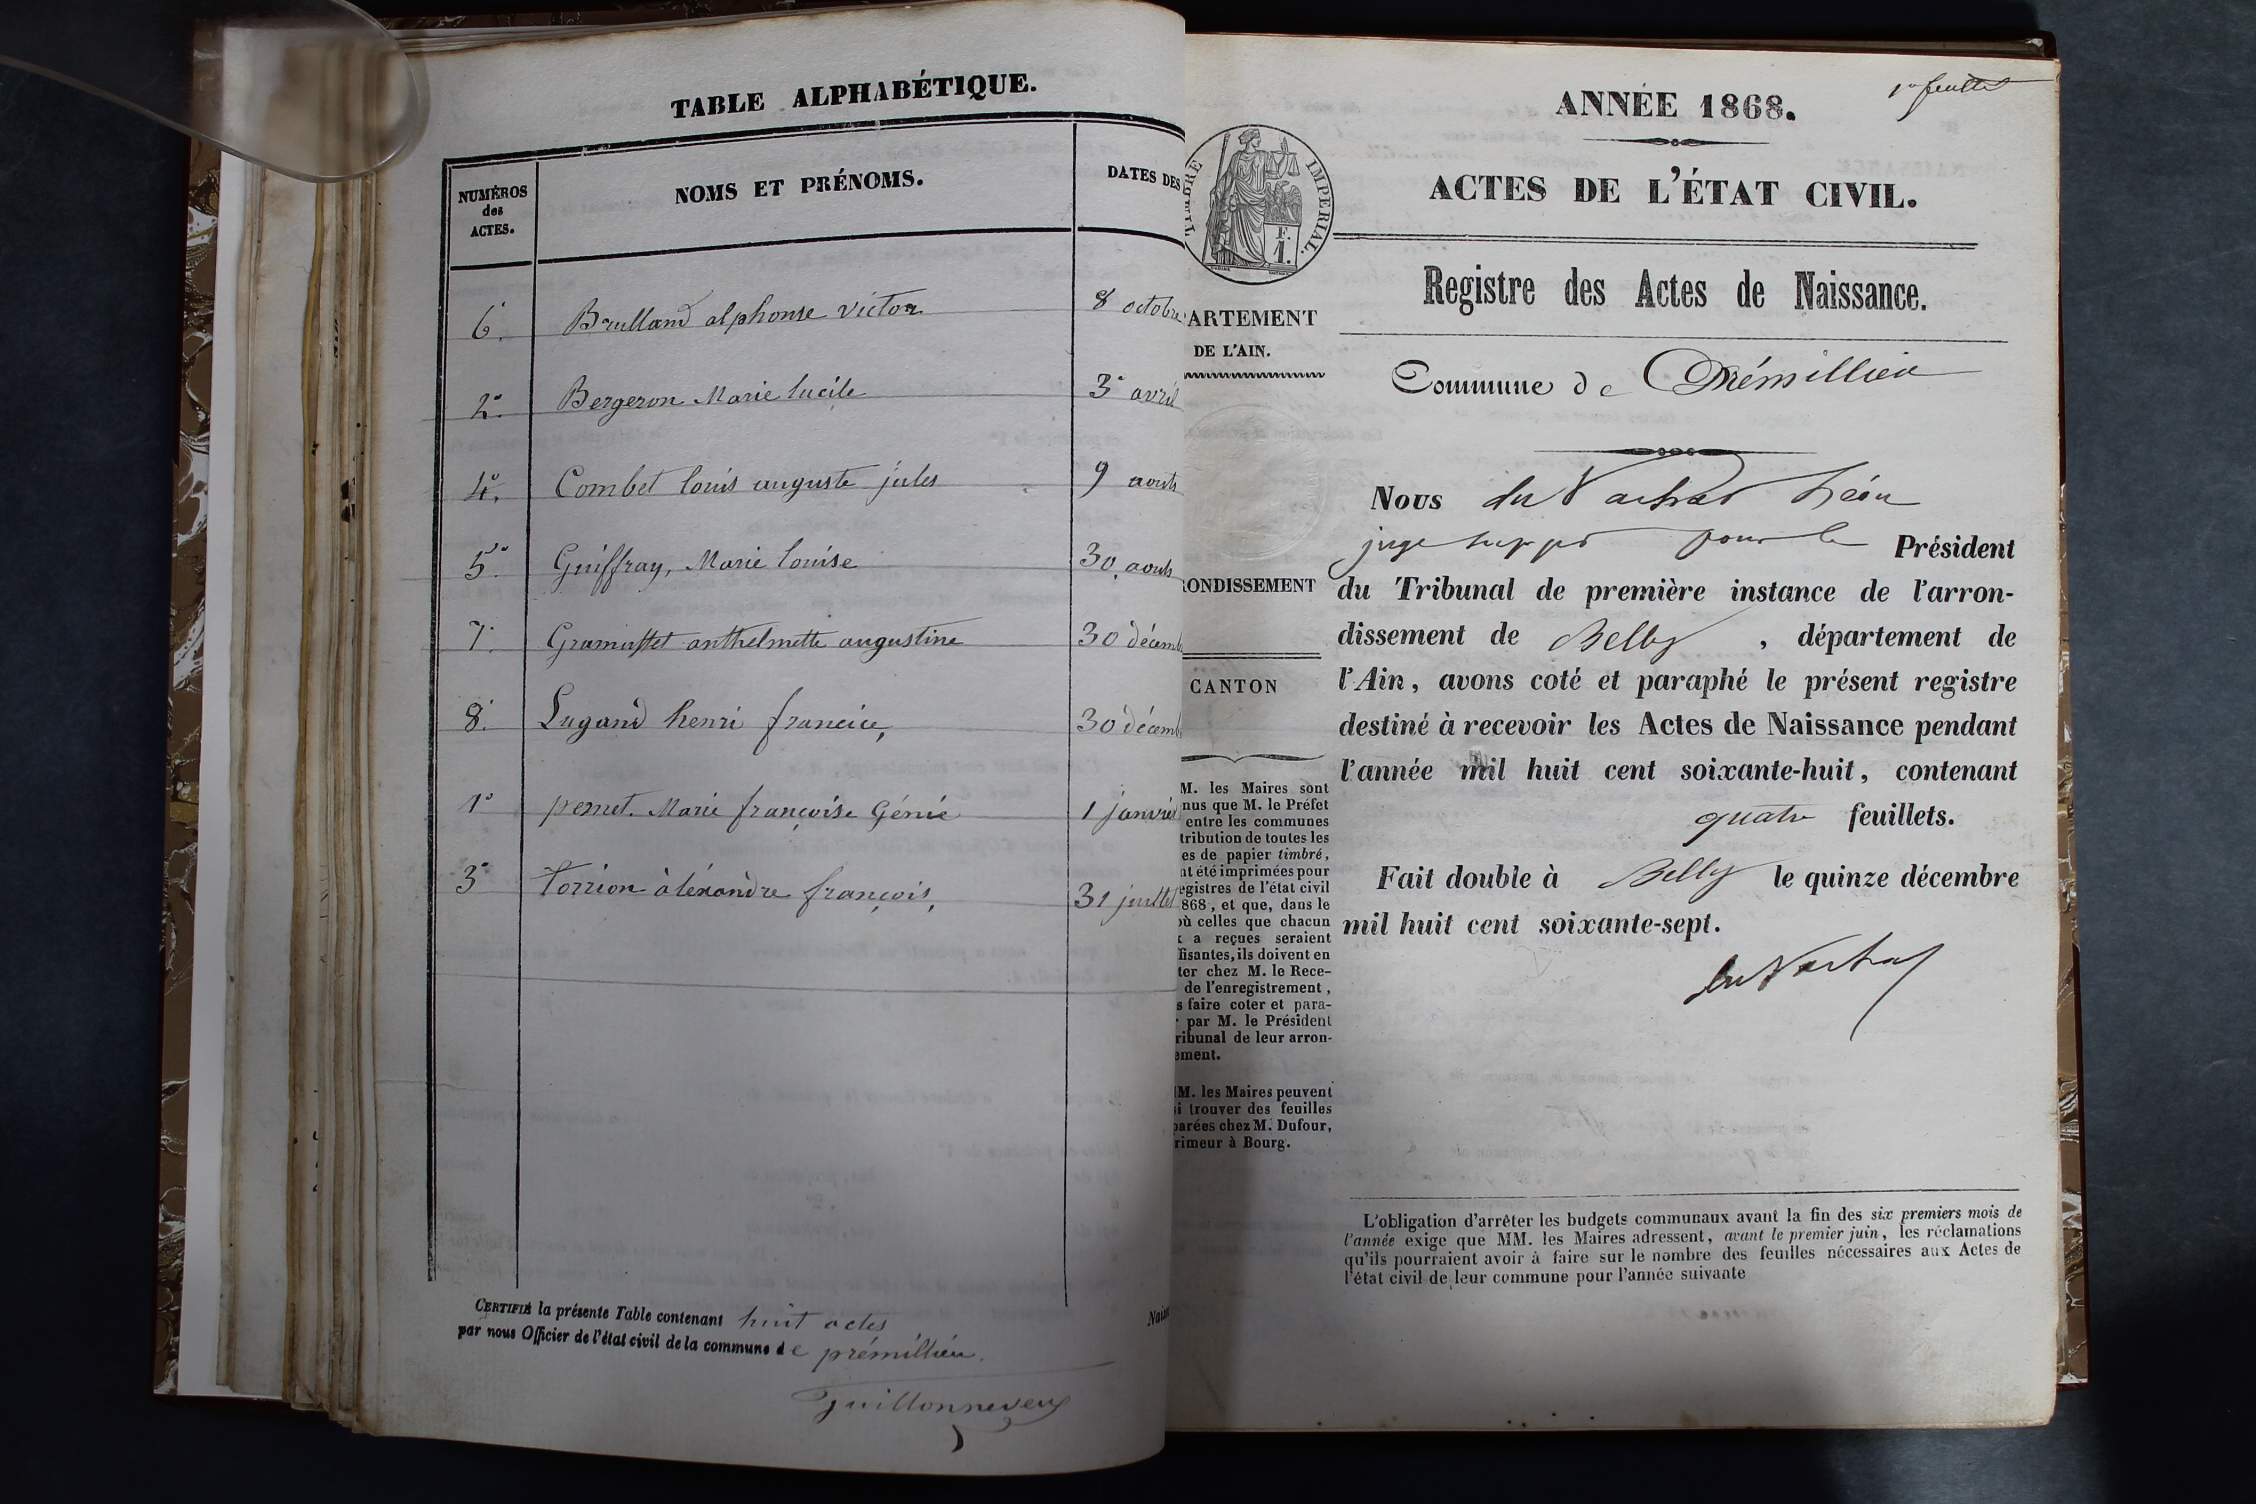 TABLE ALPHABÉTIQUE.
NUMÉROS
des
ACTES.
NOMS ET PRÉNOMS.
DATES DES
6. Brulland alphonse victor 8 octobre
2. Bergeron Marie lucile 3 avril
4. Combet louis auguste jules 9 aouts
5. Guiffray, Marie louise 30 aouts
7. Gramusset anthelmette augustine 30 décemb
8. Lugand henri francice, 30 décemb
1 pernet. Marie françoise Génie 1 janvier
3 torrion àléxandre françois, 31 juillet
CERTIFIÉ la présente Table contenant huit actes
par nous Officier de l'état civil de la commune de prémillieu.
Guillonneveu
Naiss
1er feuillet
ANNÉE 1868.
ACTES DE L'ÉTAT CIVIL.
TIMBRE IMPERIAL.
F.
1.
Registre des Actes de Naissance.
ARTEMENT
DE L'AIN.
Commune de Prémillieu
Nous du Vachat Léon
juge suppt pour le Président
RONDISSEMENT
du Tribunal de première instance de l'arron-
dissement de Belley, département de
l'Ain, avons coté et paraphé le présent registre
CANTON
destiné à recevoir les Actes de Naissance pendant
l'année mil huit cent soixante-huit, contenant
quatre feuillets.
Fait double à Belley le quinze décembre
mil huit cent soixante-sept.
du Vachat
M. les Maires sont
nus que M. le Préfet
entre les communes
tribution de toutes les
es de papier timbré,
nt été imprimées pour
egistres de l'état civil
868, et que, dans le
où celles que chacun
x a reçues seraient
fisantes, ils doivent en
ter chez M. le Rece-
de l'enregistrement,
s faire coter et para-
r par M. le Président
ribunal de leur arron-
ement.
MM. les Maires peuvent
si trouver des feuilles
parées chez M. Dufour,
rimeur à Bourg.
L'obligation d'arrêter les budgets communaux avant la fin des six premiers mois de
l'année exige que MM. les Maires adressent, avant le premier juin, les réclamations
qu'ils pourraient avoir à faire sur le nombre des feuilles nécessaires aux Actes de
l'état civil de leur commune pour l'année suivante